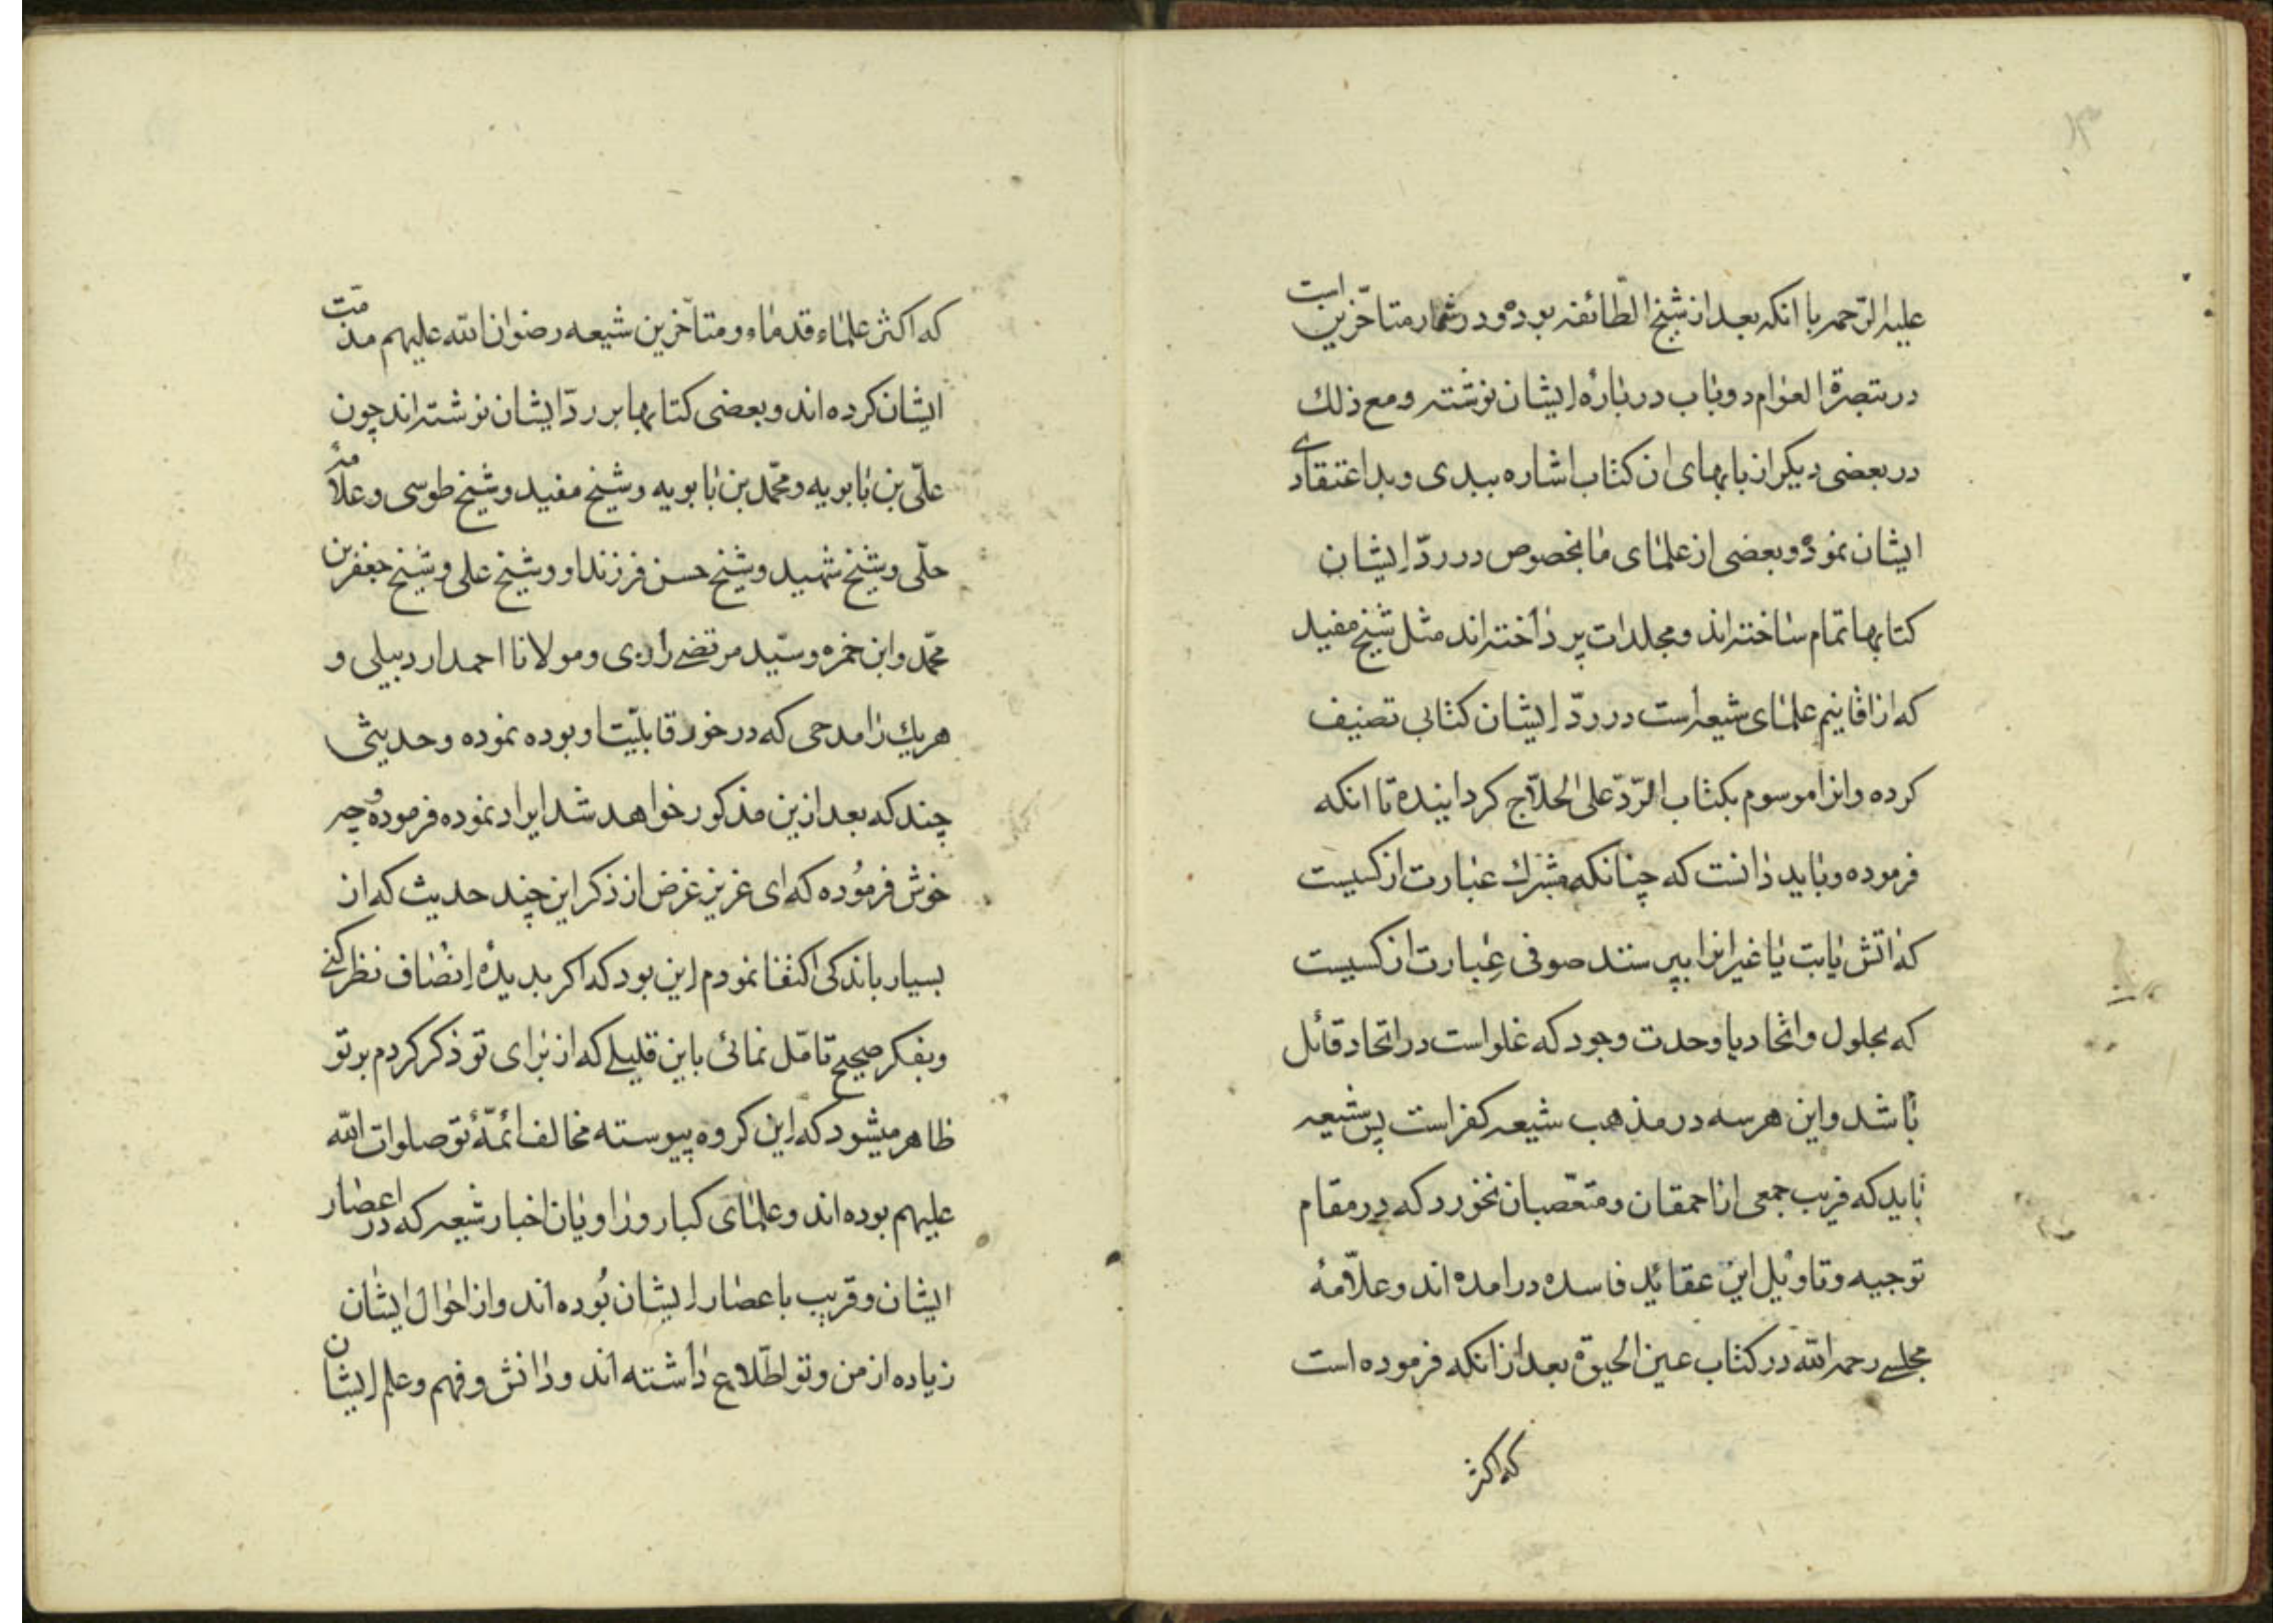 علیه الرّحمه با انکه بعد از شیخ الطّائفه بوده و در شمار متاخّرین است
در تبصرة العوام دو باب در بارهٔ ایشان نوشته و مع ذلك
در بعضی دیکر از بابهای ان کتاب اشاره ببدی و بد اعتقادی
ایشان نموده و بعضی از علمای ما بخصوص در ردّ ایشان
کتابها تمام ساخته اند و مجلدات پرداخته اند مثل شیخ مفید
که از اقانیم علمای شیعه است در ردّ ایشان کتابی تصنیف
کرده وانرا موسوم بکتاب الرّدّ علی الحلّاج کردانیده تا انکه
فرموده و باید دانست که چنانکه مشرك عبارت از کسیست
که اتش یا بت یا غیر انرا بپرستند صوفی عبارت از کسیست
که بحلول و اتحاد یا وحدت وجود که غلو است در اتحاد قائل
باشد و این هرسه در مذهب شیعه کفر است پس شیعه
باید که فریب جمعی از احمقان و متعصّبان نخورد که در مقام
توجیه و تاویل این عقائد فاسده درامده اند و علّامهٔ
مجلسی رحمه الله در کتاب عین الحیوة بعد از انکه فرموده است
که اکثر
که اکثر علماء قدماء و متاخّرین شیعه رضوان الله علیهم مذمّت
ایشان کرده اند و بعضی کتابها بر ردّ ایشان نوشته اند چون
علّی بن بابویه و محمّد بن بابویه و شیخ مفید و شیخ طوسی و علاّمهٔ
حلّی و شیخ شهید و شیخ حسن فرزند او و شیخ علی و شیخ جعفر بن
محمّد و ابن حمزه و سیّد مرتضی رازی و مولانا احمد اردبیلی و
هریك را مدحی که در خور قابلیّت او بوده نموده و حدیثی
چند که بعد ازین مذکور خواهد شد ایراد نموده فرموده و چه
خوش فرموده که ای عزیز غرض از ذکر این چند حدیث که از
بسیار باندکی اکتفا نمودم این بود که اکر بدیدهٔ انصاف نظر کنی
و بفکر صحیح تامّل نمائی باین قلیلی که از برای تو ذکر کردم بر تو
ظاهر میشود که این کروه پیوسته مخالف ائمّهٔ تو صلوات الله
علیهم بوده اند و علمای کبار و راویان اخبار شیعه که در اعصار
ایشان و قریب باعصار ایشان بوده اند و از احوال ایشان
زیاده از من و تو اطّلاع داشته اند و دانش و فهم و علم ایشان